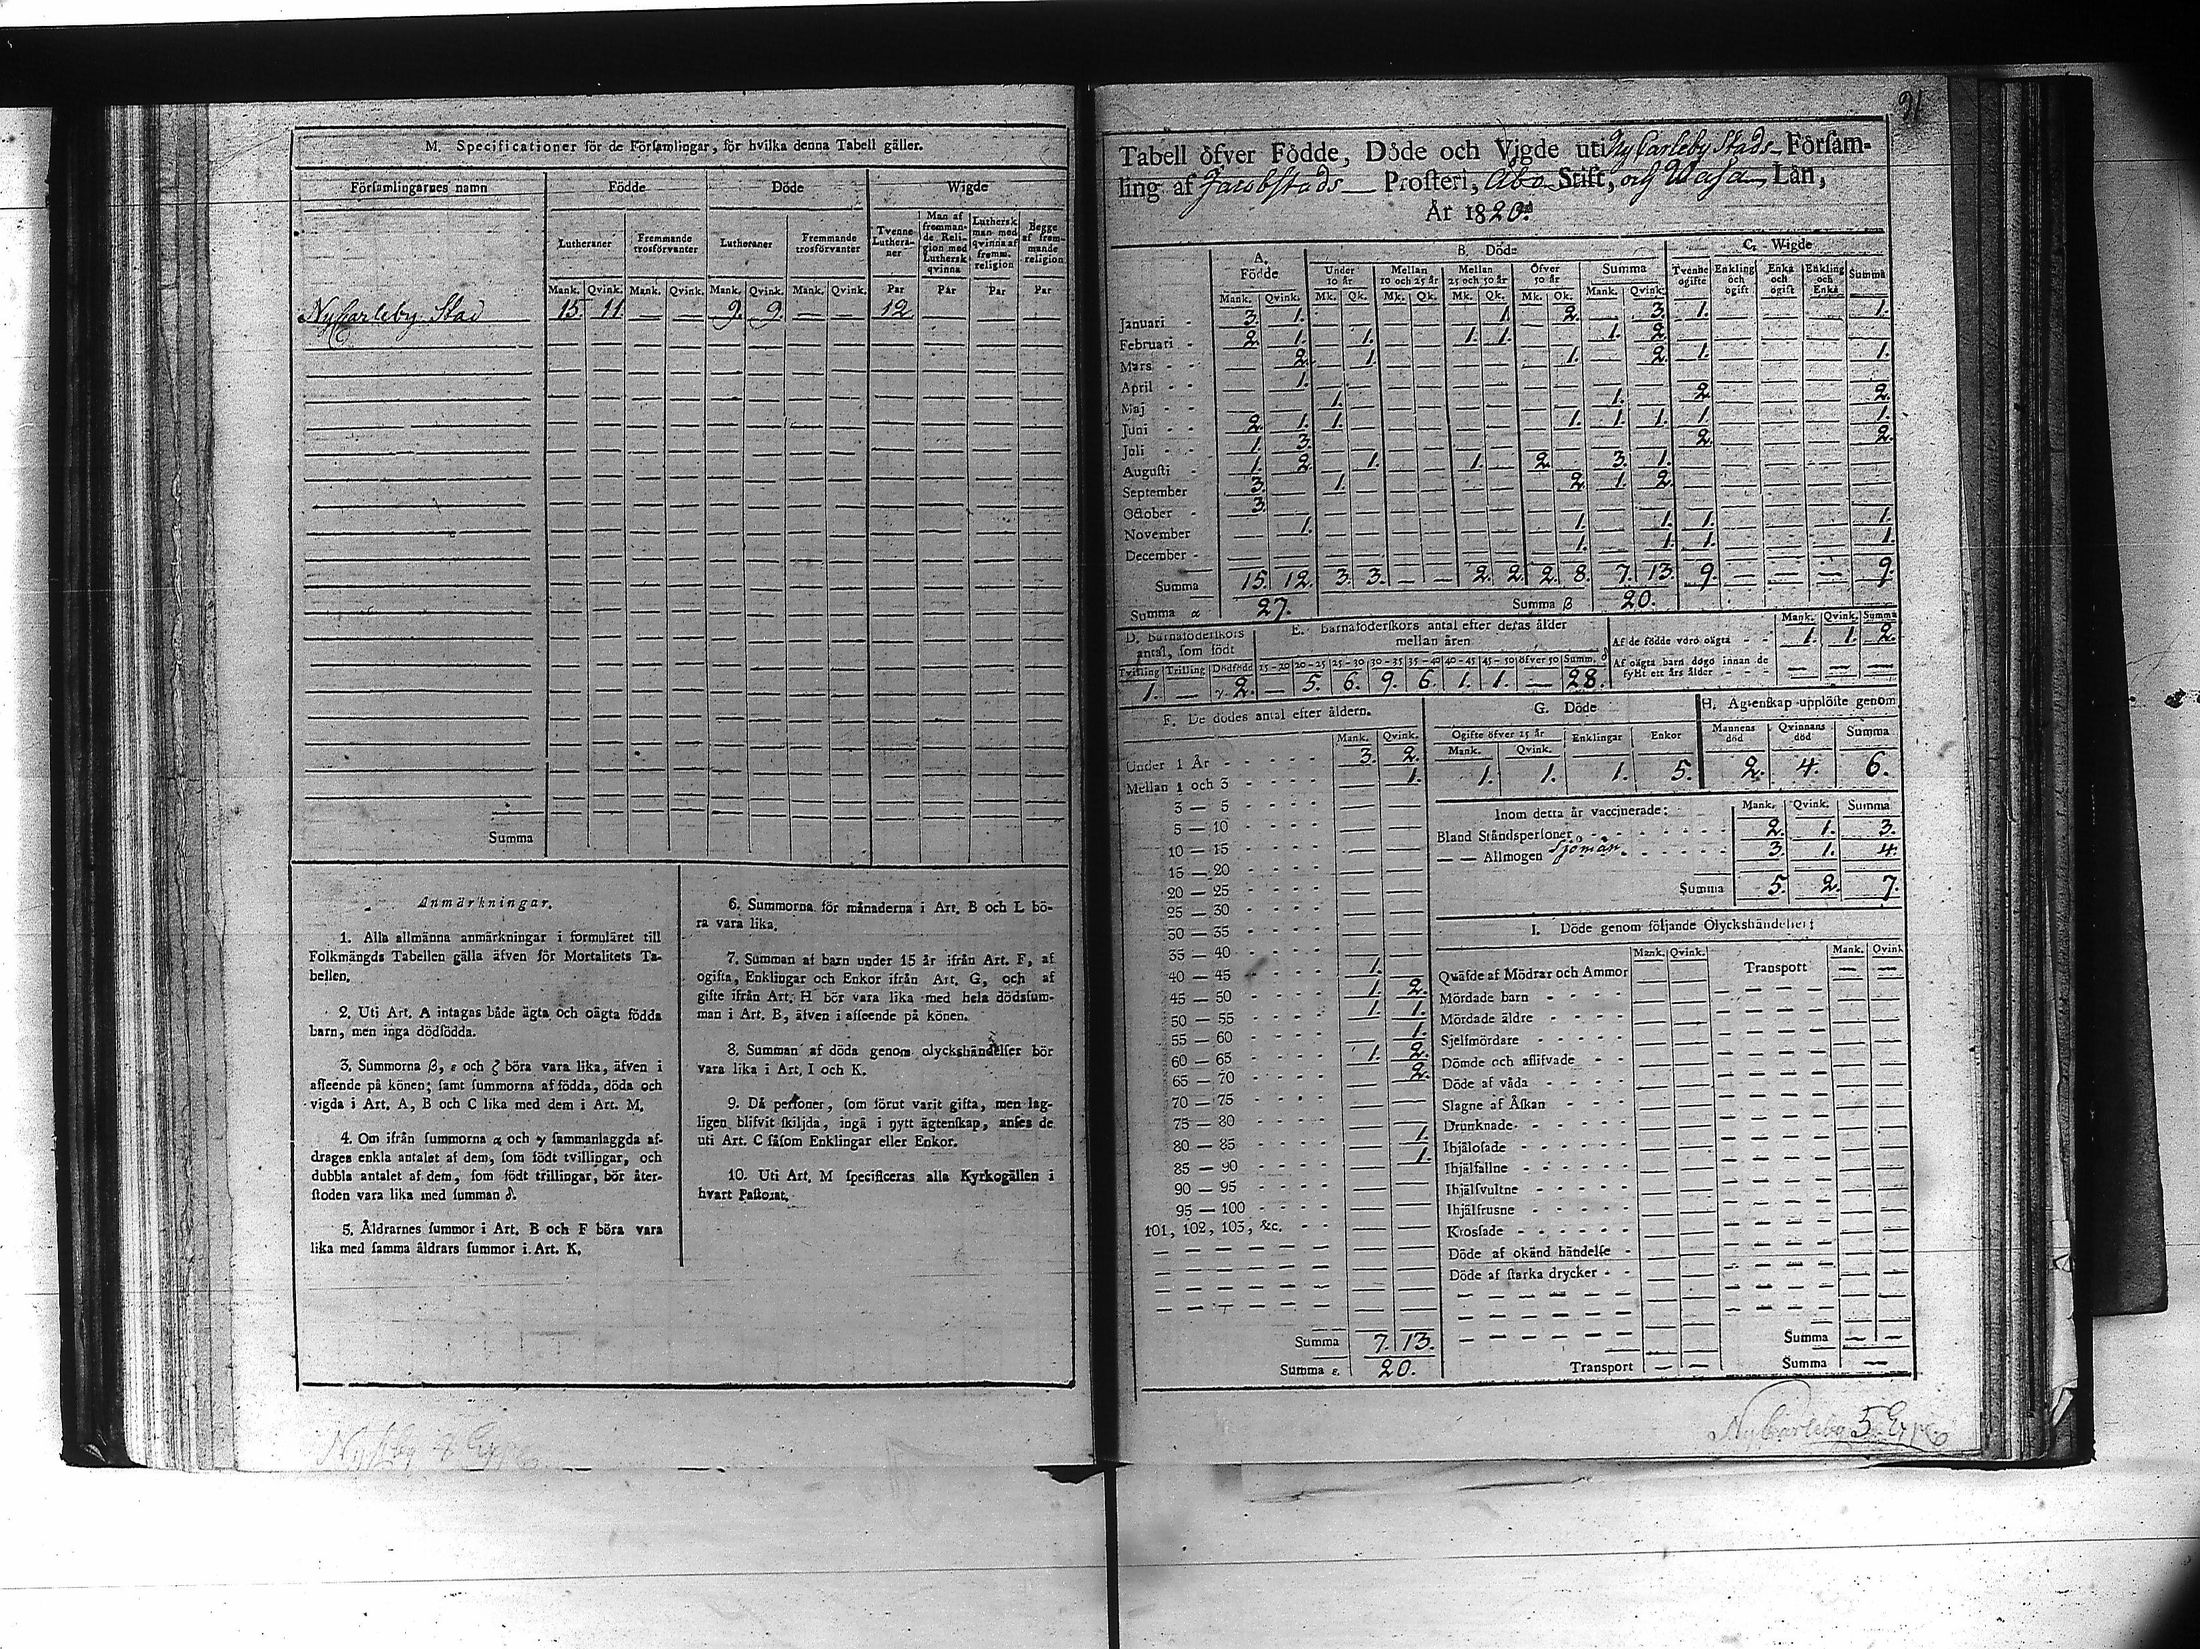 M. Specificationer för de Församlingar, för hvilka denna Tabell gäller.
Församlingarnes namn Födde Döde Wigde
Lutheraner Fremmande trosförvanter Lutheraner Fremmande trosförvanter Tvenne Lutheraner Man af fremmande Religion med Luthersk qvinna Luthersk man med qvinna af fremm. religion Begge af fremmande religion
Mank. Qvink. Mank. Qvink. Mank. Qvink. Mank. Qvink. Par Par Par Par
NyCarleby Stad 15. 11. — — 9. 9. — — 12. — — —
Summa
Anmärkningar.
1. Alla allmänna anmärkningar i formuläret till
Folkmängds Tabellen gälla äfven för Mortalitets Ta-
bellen.
2. Uti Art. A intagas både ägta och oägta födda
barn, men inga dödfödda.
3. Summorna β, ε och ζ böra vara lika, äfven i
afseende på könen; samt summorna af födda, döda och
vigda i Art. A, B och C lika med dem i Art. M.
4. Om ifrån summorna α och γ sammanlaggda af-
drages enkla antalet af dem, som födt tvillingar, och
dubbla antalet af dem, som födt trillingar, bör åter-
stoden vara lika med summan δ.
5. Åldrarnes summor i Art. B och F böra vara
lika med samma åldrars summor i Art. K.
6. Summorna för månaderna i Art. B och L bö-
ra vara lika.
7. Summan af barn under 15 år ifrån Art. F, af
ogifta, Enklingar och Enkor ifrån Art. G, och af
gifte ifrån Art. H bör vara lika med hela dödssum-
man i Art. B, äfven i afseende på könen.
8. Summan af döda genom olyckshändelser bör
vara lika i Art. I och K.
9. Då personer, som förut varit gifta, men lag-
ligen blifvit skiljda, ingå i nytt ägtenskap, anses de
uti Art. C såsom Enklingar eller Enkor.
10. Uti Art. M specificeras alla Kyrkogällen i
hvart Pastorat.
91
Tabell öfver Födde, Döde och Vigde uti Ny Carleby Stads Församling
af Jacobstads — Prosteri, Åbo Stift, och Wasa Län,
År 1820.
A. Födde B. Döde C. Wigde
Under 10 år Mellan 10 och 25 år Mellan 25 och 50 år Öfver 50 år Summa Tvenne ogifte Enkling och ogift Enka och ogift Enkling och Enka Summa
Mank. Qvink. Mk. Qk. Mk. Qk. Mk. Qk. Mk. Qk. Mank. Qvink.
Januari 3. 1. — — — — — 1. — 2. — 3. 1. — — — 1.
Februari 2. 1. — 1. — — 1. 1. — — 1. 2. — — — — —
Mars — 2. — 1. — — — — — 1. — 2. 1. — — — 1.
April — 1. — — — — — — — — — — — — — — —
Maj — — 1. — — — — — — — 1. — 2. — — — 2.
Juni 2. 1. 1. — — — — — — 1. 1. 1. 1. — — — 1.
Juli 1. 3. — — — — — — — — — — 2. — — — 2.
Augusti 1. 2. — 1. — — 1. — 2. — 3. 1. — — — — —
September 3. — 1. — — — — — — 2. 1. 2. — — — — —
October 3. — — — — — — — — — — — — — — — —
November — 1. — — — — — — — 1. — 1. 1. — — — 1.
December — — — — — — — — — 1. — 1. 1. — — — 1.
Summa 15. 12. 3. 3. — — 2. 2. 2. 8. 7. 13. 9. — — — 9.
Summa α 27. Summa β 20.
D. Barnaföderskors antal, som födt
Tvilling Trilling Dödfödd
1. — γ 2.
E. Barnaföderskors antal efter deras ålder mellan åren
15-20 20-25 25-30 30-35 35-40 40-45 45-50 öfver 50 Summ. δ
— 5. 6. 9. 6. 1. 1. — 28.
Mank. Qvink. Summa
Af de födde voro oägta 1. 1. 2.
Af oägta barn dogo innan de fyllt ett års ålder — — —
F. De dödes antal efter åldern.
Mank. Qvink.
Under 1 År 3. 2.
Mellan 1 och 3 — 1.
3 — 5 — —
5 — 10 — —
10 — 15 — —
15 — 20 — —
20 — 25 — —
25 — 30 — —
30 — 35 — —
35 — 40 — —
40 — 45 1. —
45 — 50 1. 2.
50 — 55 1. 1.
55 — 60 — 1.
60 — 65 1. 2.
65 — 70 — 2.
70 — 75 — —
75 — 80 — —
80 — 85 — 1.
85 — 90 — 1.
90 — 95 — —
95 — 100 — —
101, 102, 103, &c. — —
Summa 7. 13.
Summa ε. 20.
G. Döde
Ogifte öfver 15 år Enklingar Enkor
Mank. Qvink.
1. 1. 1. 5.
H. Ägtenskap upplöste genom
Mannens död Qvinnans död Summa
2. 4. 6.
Inom detta år vaccinerade: Mank. Qvink. Summa
Bland Ståndspersoner 2. 1. 3.
— — Allmogen Sjömän 3. 1. 4.
Summa 5. 2. 7.
I. Döde genom följande Olyckshändelser:
Mank. Qvink. Mank. Qvink.
Qväfde af Mödrar och Ammor Transport — —
Mördade barn
Mördade äldre
Sjelfmördare
Dömde och aflifvade
Döde af våda
Slagne af Åskan
Drunknade
Ihjälosade
Ihjälfallne
Ihjälsvultne
Ihjälfrusne
Krossade
Döde af okänd händelse
Döde af starka drycker
Summa — —
Transport — — Summa —
NyCarleby 5